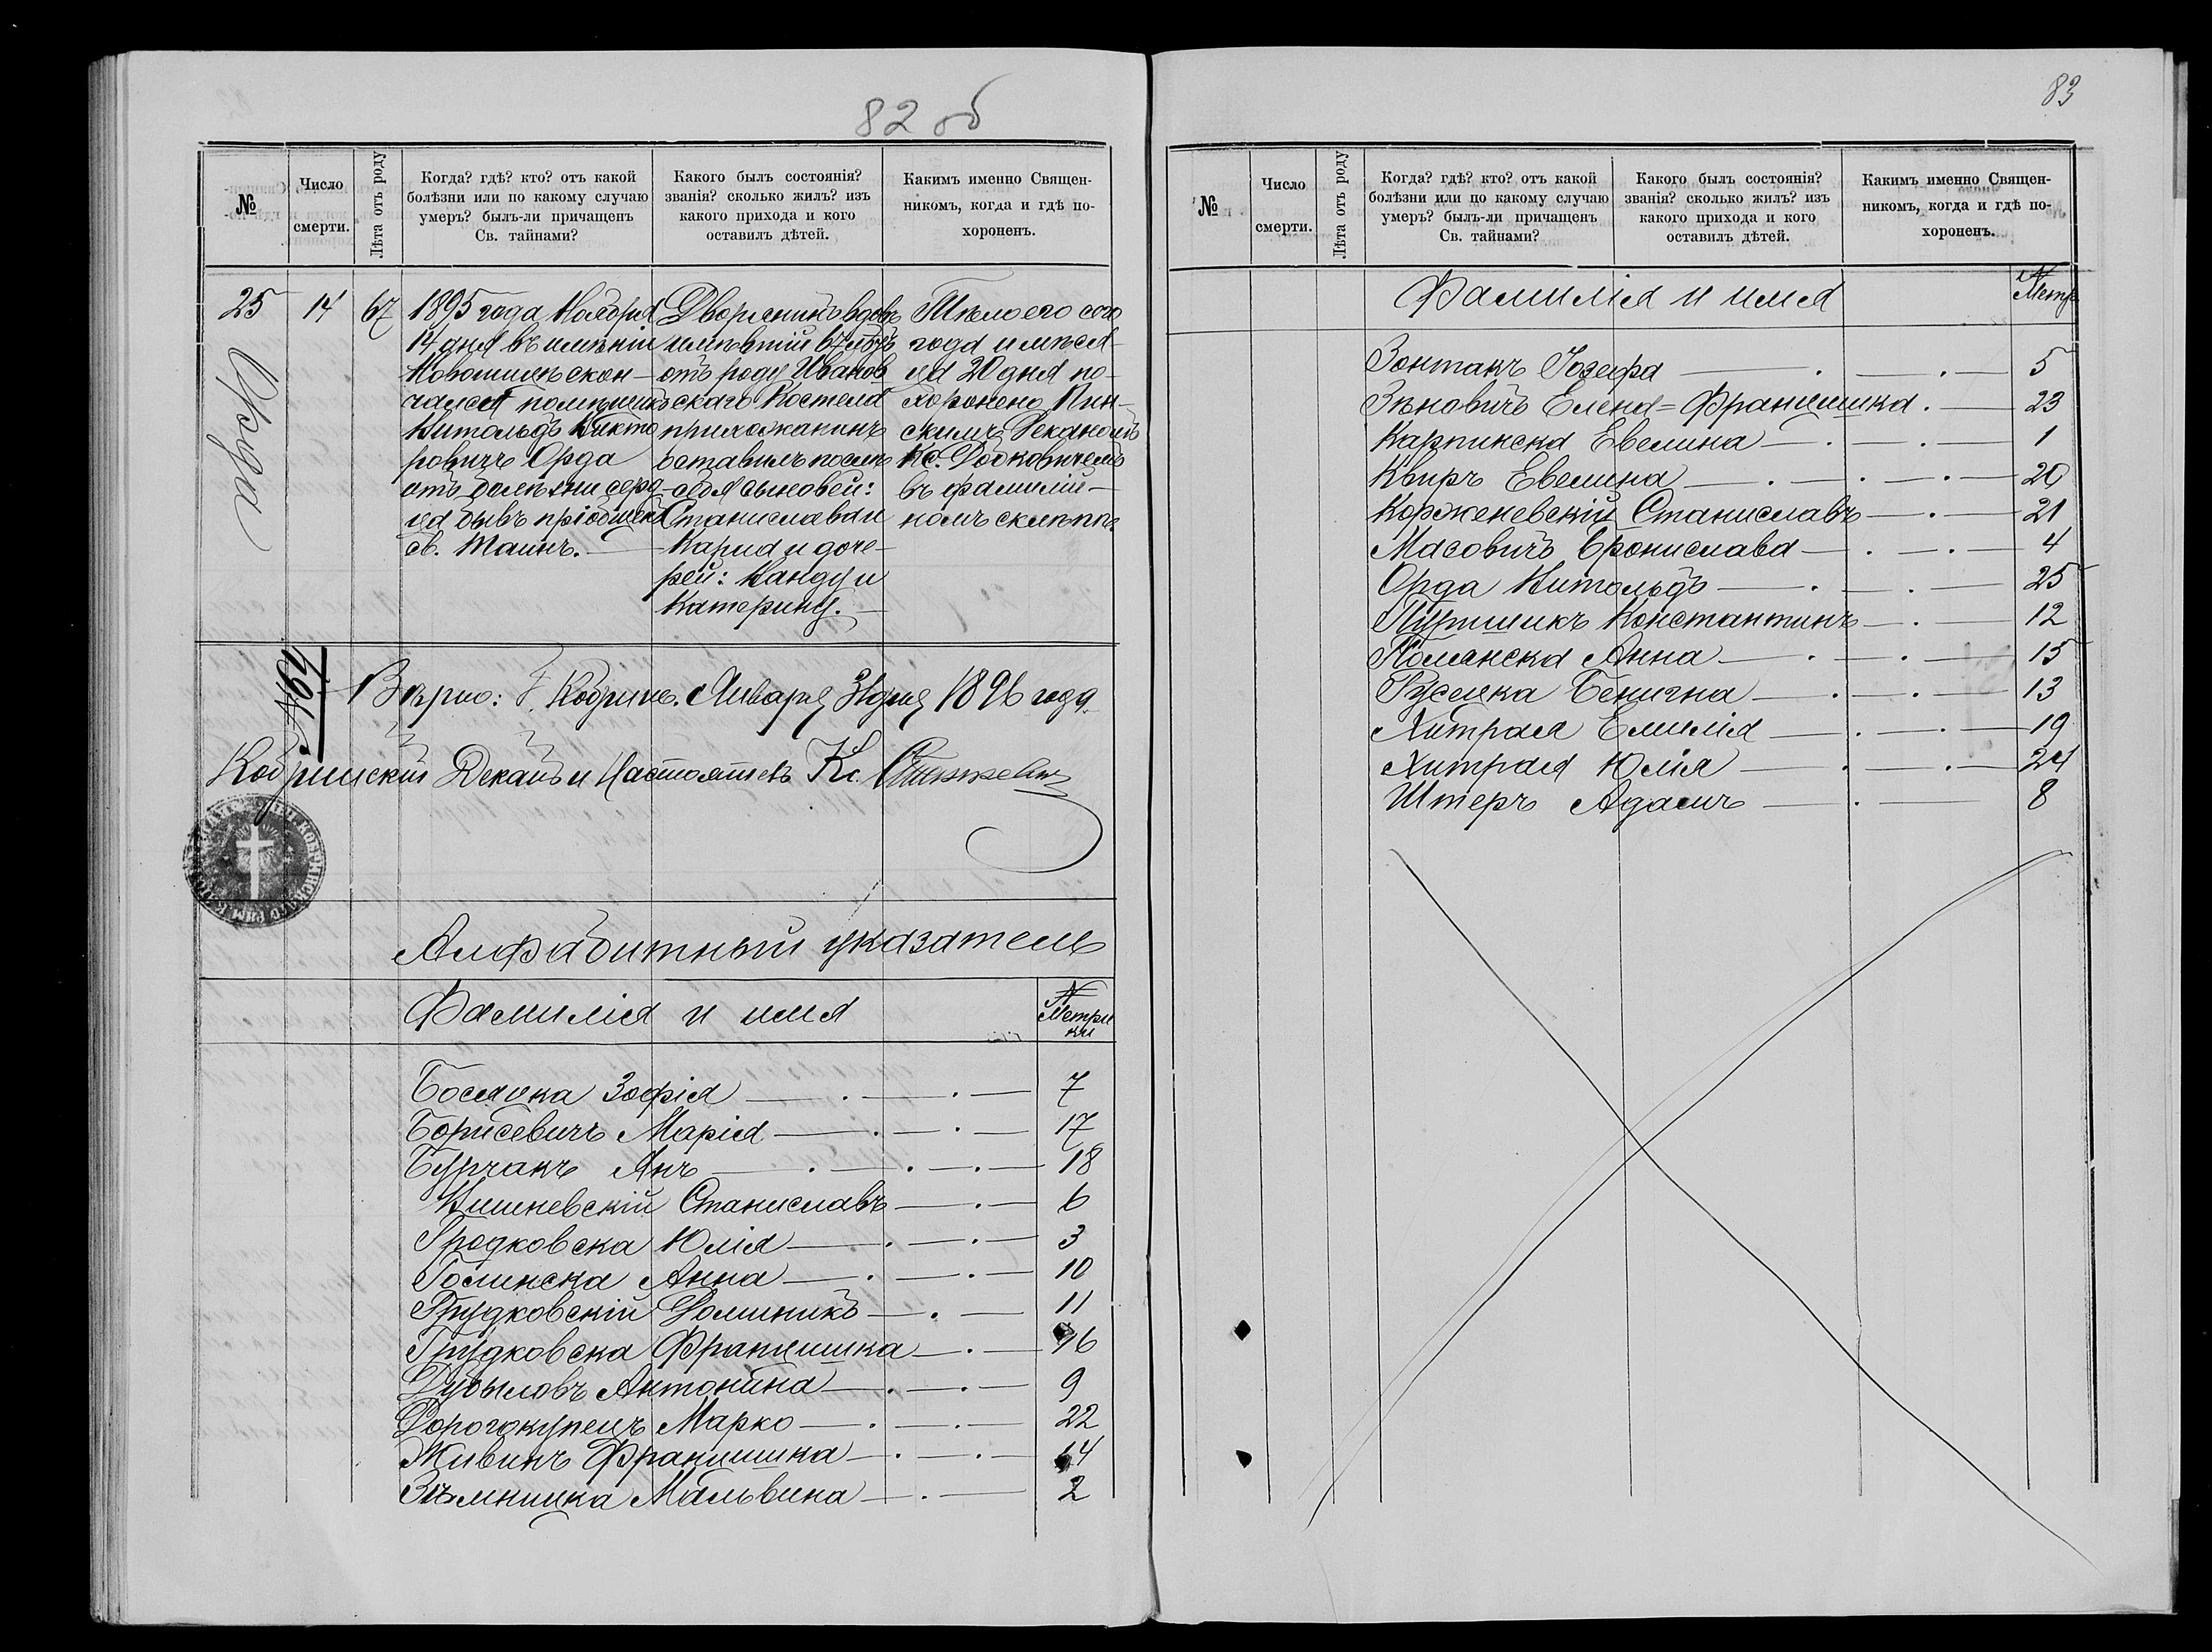 82 об
№
Число смерти.
Лѣта отъ роду
Когда? гдѣ? кто? отъ какой
болѣзни или по какому случаю
умеръ? былъ-ли причащенъ
Св. тайнами?
Какого былъ состоянія?
званія? сколько жилъ? изъ
какого прихода и кого
оставилъ дѣтей.
Какимъ именно Священ-
никомъ, когда и гдѣ по-
хороненъ.
25
Орда
14
67
1895 года Ноября
14 дня въ имѣніи
скон-
чался помѣщикъ
Витольдъ Викто
ровичъ Орда
отъ болѣзни серд
ца бывъ пріобщенъ
св. Таинъ.
Дворянинъ вдовъ
имѣвшій 67 лѣтъ
отъ роду Иванов
скаго Костела
прихожанинъ
оставилъ послѣ
себя сыновей:
Станислава и
Карла и доче-
рей: Ванду и
Катерину.
Тѣло его сего
года и мѣся-
ца 20 дня по-
хоронено Пин-
скимъ Деканомъ
Кс.
въ фамилій-
номъ склепѣ
№ 69
Вѣрно: Г. Кобринъ. Января 31 дня 1896 года.
Кобринскій Деканъ и Настоятель Кс.
Алфабитный указатель
Фамилія и имя
№ Метри ки
Зофія 7
Борисевичъ Марія 17
Бурчакъ Янъ 18
Вишневскій Станиславъ 6
Гродковска Юлія 3
Голинска Анна 10
Грудковскій Доминикъ 11
Грудковска Францишка 16
Дубыловъ Антонина 9
Дорогокупецъ Марко 22
Живинъ Францишка 14
Зѣмницка Мальвина 2
83
№
Число смерти.
Лѣта отъ роду
Когда? гдѣ? кто? отъ какой
болѣзни или по какому случаю
умеръ? былъ-ли причащенъ
Св. тайнами?
Какого былъ состоянія?
званія? сколько жилъ? изъ
какого прихода и кого
оставилъ дѣтей.
Какимъ именно Священ-
никомъ, когда и гдѣ по-
хороненъ.
Фамилія и имя
№ Метр
Зонтакъ Іозефа 5
Зѣновичъ Елена=Францишка 23
Карпинска Евелина 1
Квиръ Евелина 20
Корженевскій Станиславъ 21
Масовичъ Бронислава 4
Орда Витольдъ 25
Константинъ 12
Поланска Анна 15
Русецка Бенигна 13
Хитрая Емилія 19
Хитрая Юлія 24
Штеръ Адамъ 8